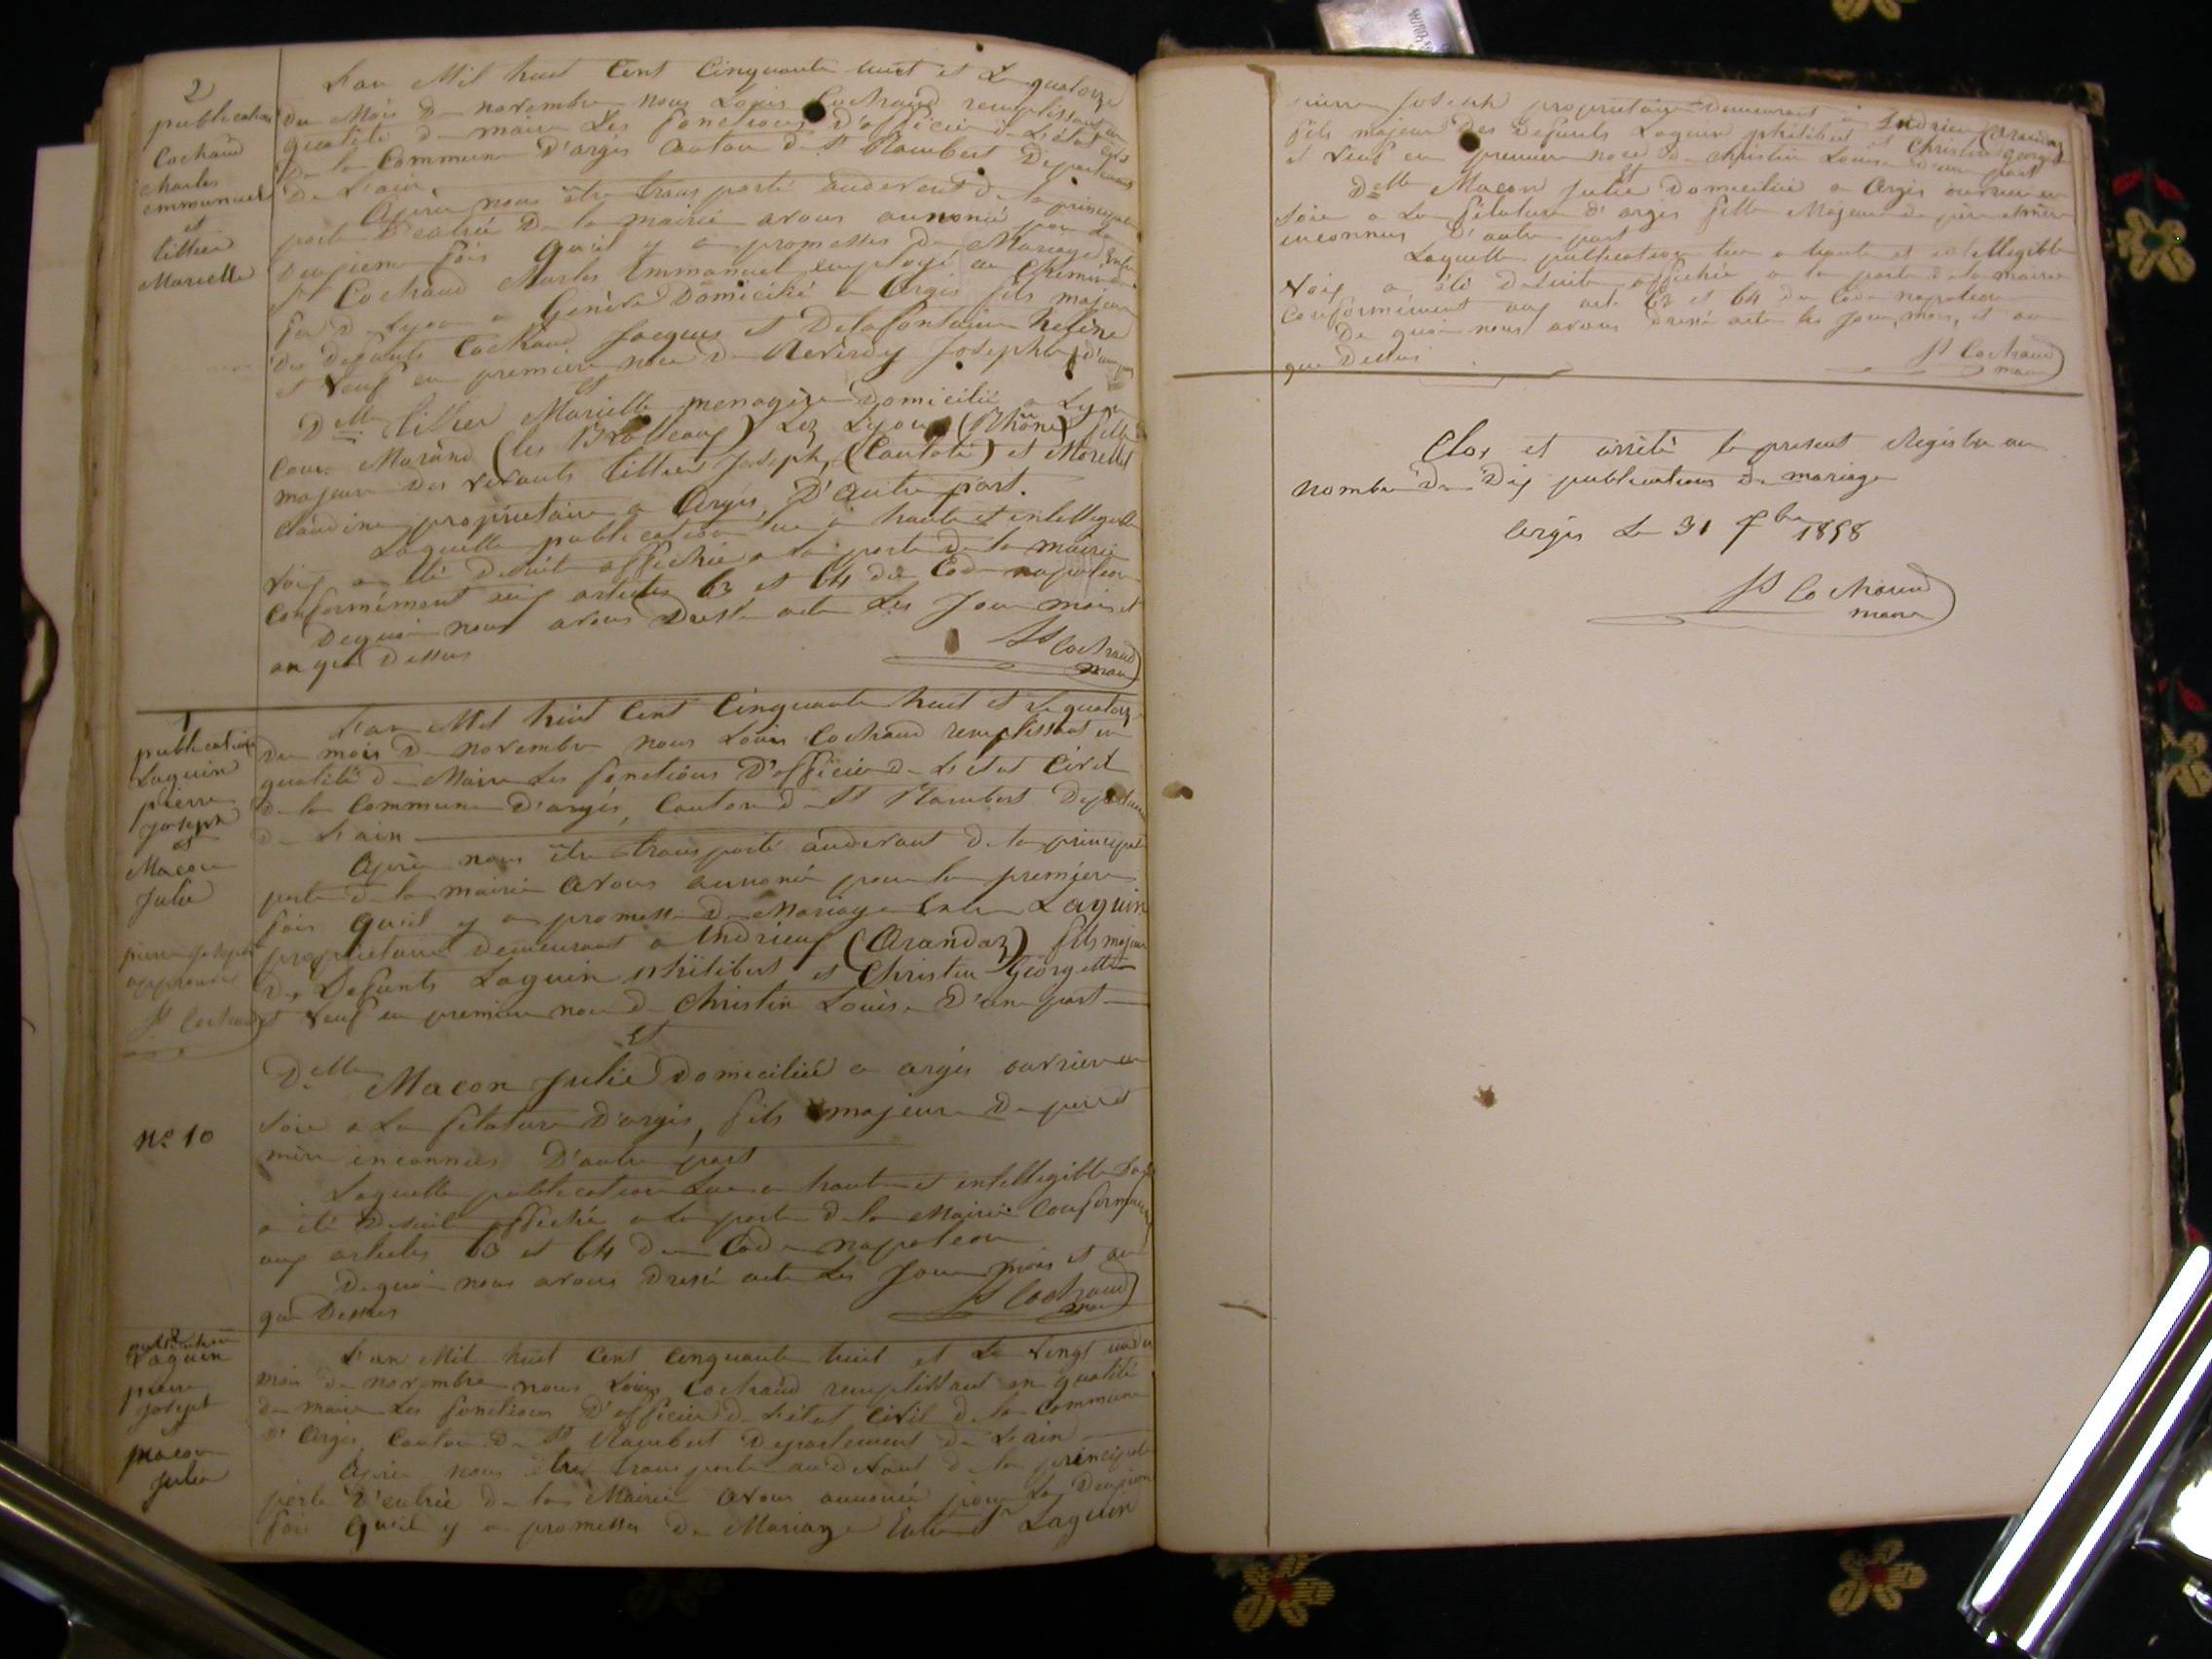 2
publication
Cochaud
charles
emmanuel
et
tillier
Mariette
L'an Mil huit Cent Cinquante huit et Le quatorze
du Mois De novembre nous Louis Cochaud remplissant en
qualité de maire Les fonctions D'officier de L'état Civil
De la Commune D'argis Canton de St Rambert Departement
De L'ain,
Après nous être transporté audevent de la principale
porte D'entrée De la mairie avons annoncé pour la
Deuxieme fois qu'il y a promesses de Mariage Entre
Sr Cochaud Charles Emmanuel employé au Chemin de
fer De Lyon a Genève Domicilié a Argis fils majeur
Des Defunts Cochaud Jacques et Delafontaine helène
et veuf en premiere noce De Reverdy Josephte D'une part
et
Delle tillier Mariette menagère Domicilié a Lyon
Cour Morand (les Brotteaux) Lez Lyon (Rhône) fille
majeure Des vivants tillier Joseph, (Cantal) et Morellet
Claudine propriétaire a Argis, D'autre part.
Laquelle publication lue à haute et intelligible
voix a été Desuite affichée a la porte De la mairie
Conformément aux articles 63 et 64 du Code napoleon
Dequoi nous avons Dressé acte Les Jour mois et
an que Dessus
Ls Cochaud
maire
1
publication
Laguin
pierre
Joseph
et
Macon
Julie
pierre Joseph
approuvé
Ls Cochaud
L'an Mil huit Cent Cinquante huit et Le quatorze
du mois De novembre nous Louis Cochaud remplissant en
qualité de Maire Les fonctions D'officier de L'état Civil
De la Commune D'argis, Canton de St Rambert Departement
De L'ain
Après nous être transporté audevant de la principale
porte de la mairie avons annoncé pour la premiere
fois qu'il y a promesse De Mariage Entre Laguin
propriétaire demeurant a Indrieux (Arandaz) fils majeur
Des Defunts Laguin philibert et Christin Georgette
et veuf en premiere noce de Christin Louise D'une part
Et
Delle Macon Julie Domiciliée a argis ouvriere en
n° 10
Soie a La filature D'argis, fils majeure De père et
mère inconnus D'autre part
Laquelle publication Lue a haute et intelligible Voix
a été Desuite affiché a la porte de la Mairie Conformément
aux articles 63 et 64 Du Code napoleon
Dequoi nous avons Dressé acte Les Jour mois et an
que Dessus
Ls Cochaud
maire
2
publication
Laguin
pierre
Joseph
Macon
Julie
L'an Mil huit Cent Cinquante huit et Le vingt un du
mois De novembre nous Louis Cochaud remplissant en qualité
de maire Les fonctions D'officier de L'état Civil de la Commune
D'Argis Canton De St Rambert Departement De L'ain
Après nous être transporté audevant de la principale
porte D'entrée De la Mairie avons annoncé pour La Deuxieme
fois qu'il y a promesses De Mariage Entre Sr Laguin
pierre Joseph propriétaire demeurant à Indrieux (Arandaz)
fils majeur Des Defunts Laguin philibert et Christin Georgette
et Veuf en premiere noce De Christin Louise D'une part
Et
Delle Macon Julie Domiciliée a Argis ouvriere en
Soie a La filature d'argis fille Majeure de père et mère
inconnus D'autre part
Laquelle publication lue a haute et intelligible
Voix a été Desuite affichée a la porte de la mairie
Conformément aux arts 63 et 64 Du Code napoleon
De quoi nous avons Dressé acte les Jour, mois, et an
que Dessus
Ls Cochaud
maire
Clos et arrêté le present Registre au
nombre De Dix publications De mariage
Argis Le 31 1858
Ls Cochaud
maire